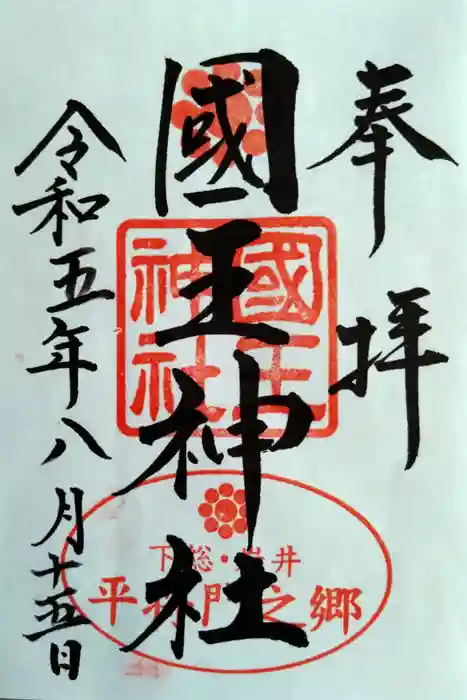 奉拝
國王神社
令和五年八月十五日
國王神社
下総・岩井
平将門之郷